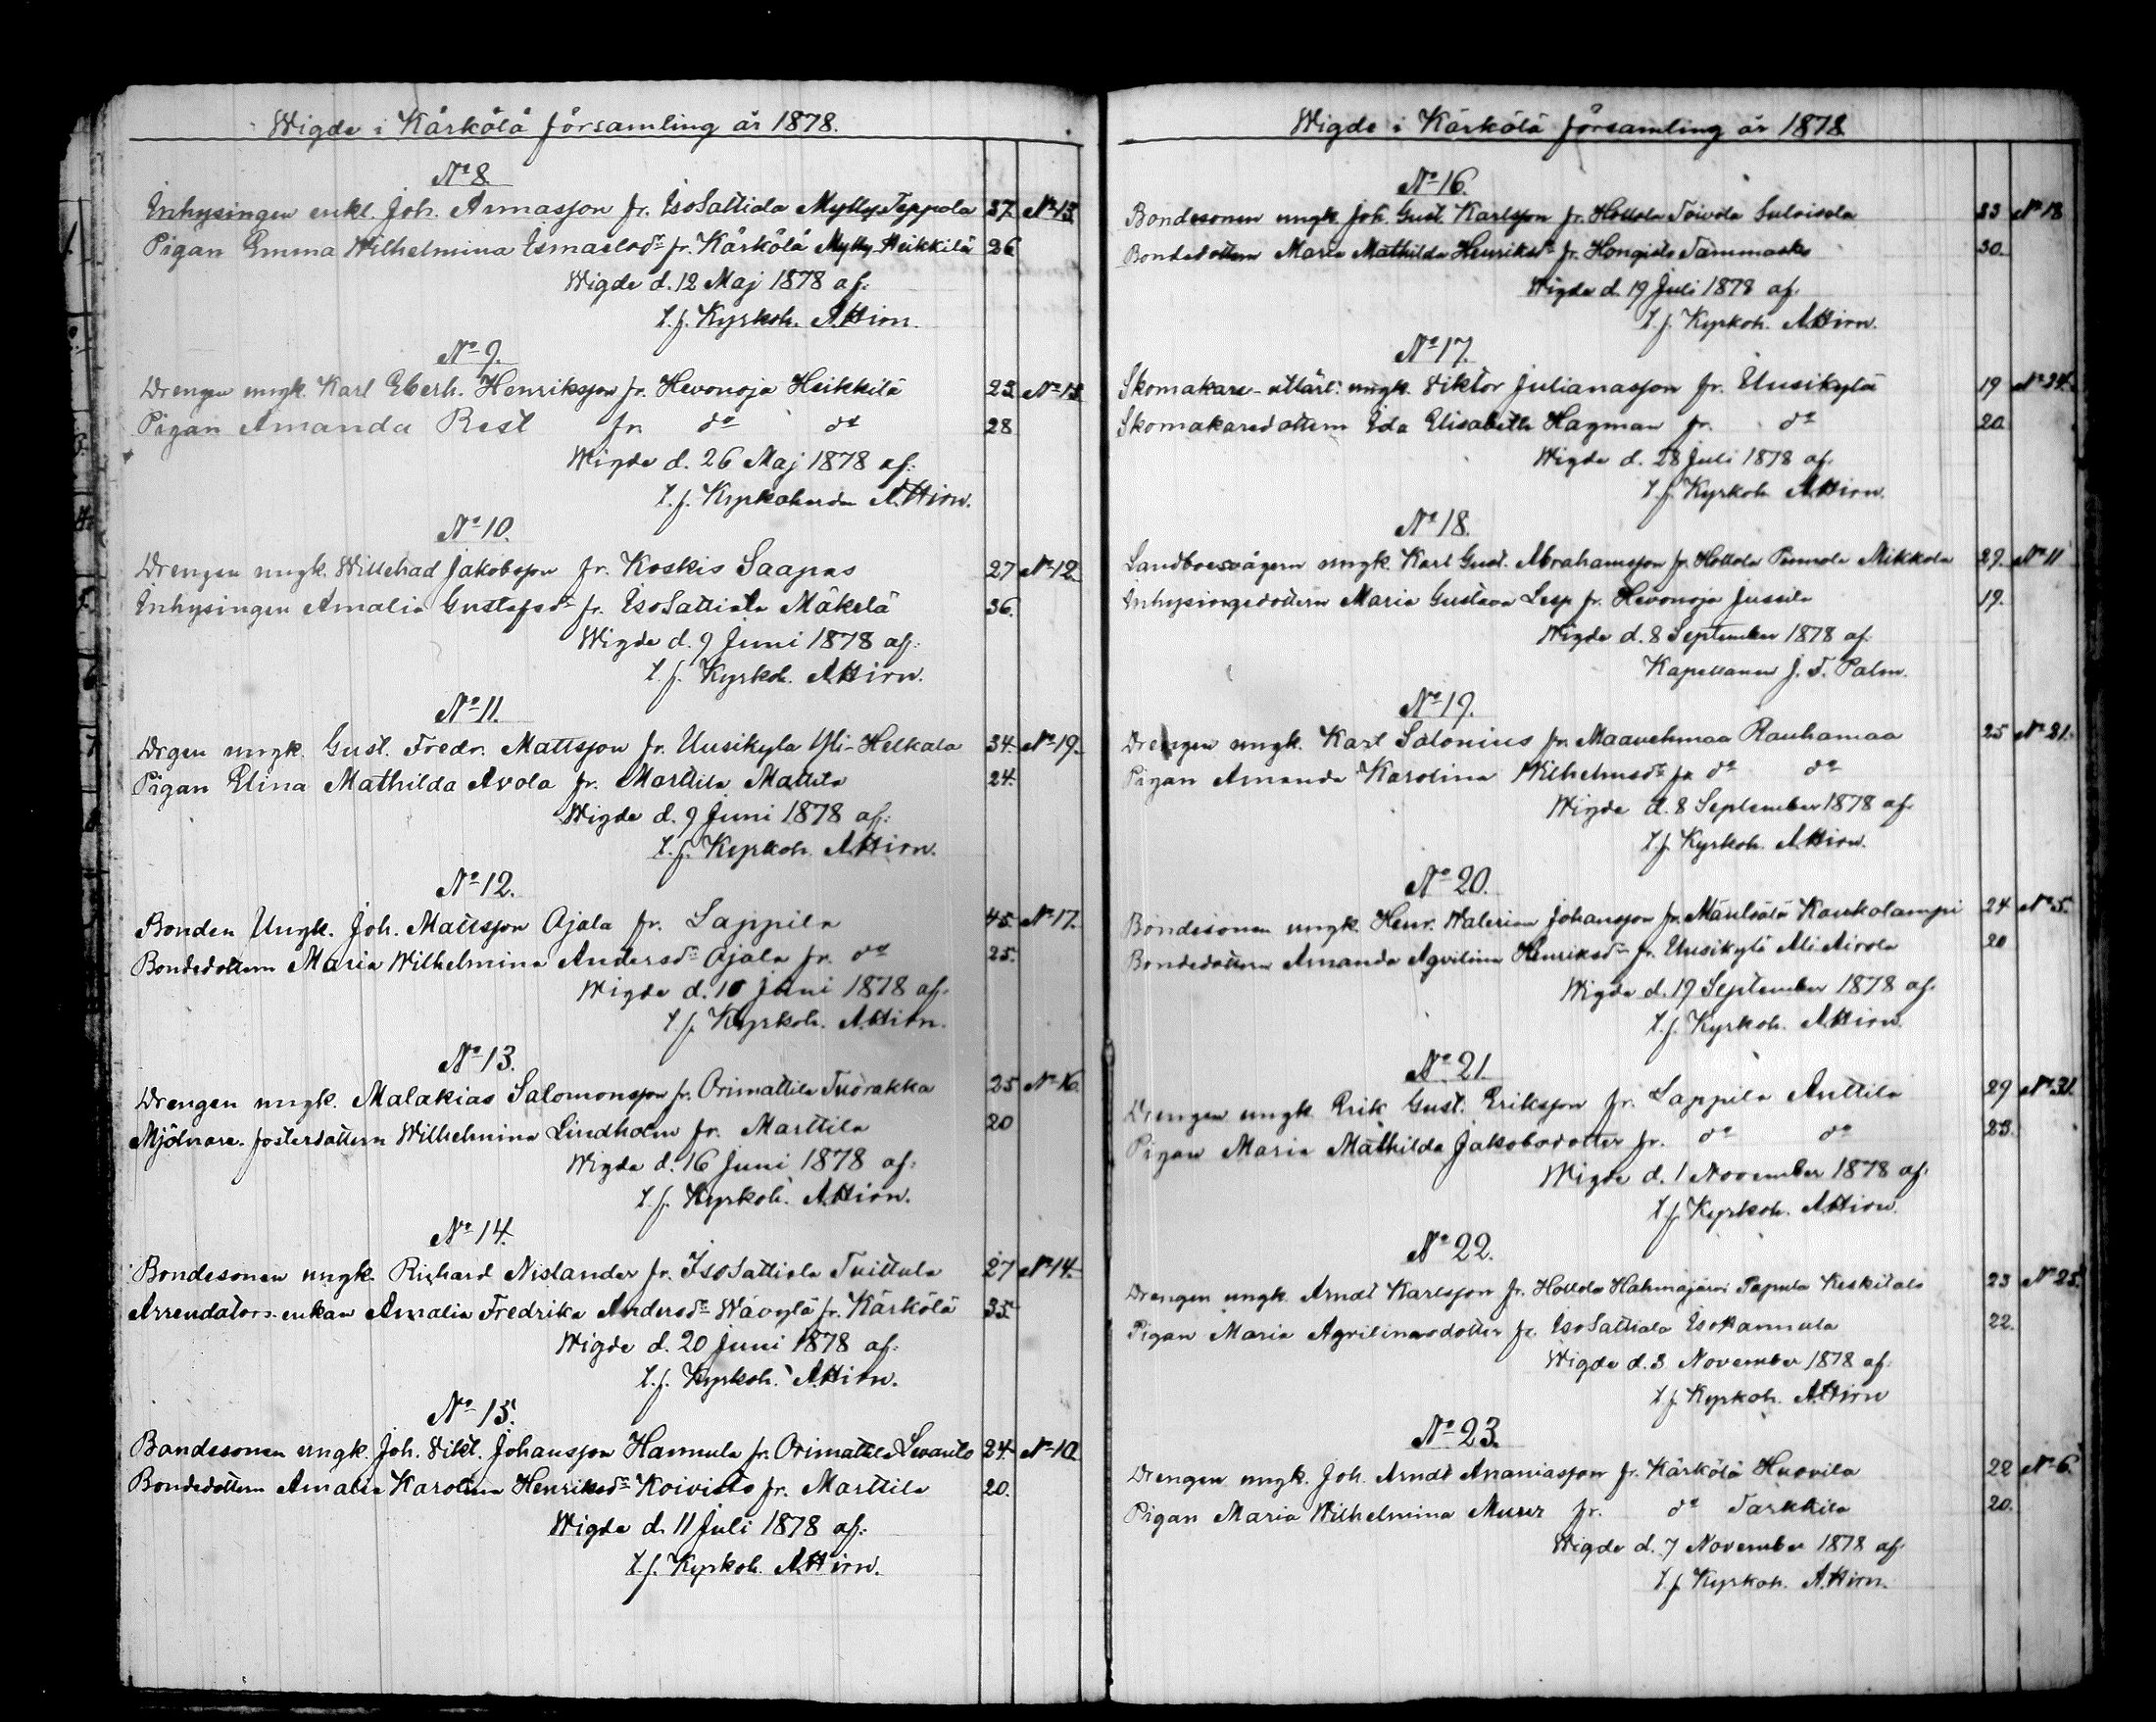 Wigde i Kärkölä församling år 1878.
№ 8.
Inhysingen enkl. Joh. Annasson fr. IsoSattiala Mylly Teppola 37. № 13.
Pigan Emma Wilhelmina Ismaelsdr fr. Kärkölä Mylly-Heikkilä 26
Wigde d. 12 Maj 1878 af:
t.f. Kyrkoh. A. Hirn.
№ 9.
Drengen ungk. Karl Eberh. Henriksson fr. Hevonoja Heikkilä 23 № 13
Pigan Amanda Rest fr. do do 28
Wigde d. 26 Maj 1878 af:
t.f. Kyrkoherde A. Hirn.
№ 10.
Drengen ungk. Willehad Jakobsson fr. Koskis Saapas 27 № 12.
Inhysingen Amalia Gustafsdr fr. IsoSattiala Mäkelä 36.
Wigde d. 9 Juni 1878 af:
t.f. Kyrkoh. A. Hirn.
№ 11.
Drgen ungk. Gust. Fredr. Mattsson fr. Uusikyla Yli-Helkala 34. № 19.
Pigan Elina Mathilda Avola fr. Marttila Mattila 24.
Wigde d. 9 Juni 1878 af:
t.f. Kyrkoh. A. Hirn.
№ 12.
Bonden Ungk. Joh. Mattsson Ojala fr. Lappila 45. № 17.
Bondedottern Maria Wilhelmina Andersdr Ojala fr. do 25.
Wigde d. 10 Juni 1878 af.
t.f. Kyrkoh. A. Hirn.
№ 13.
Drengen ungk. Malakias Salomonsson fr. Orimattila Tuorakka 25 № 16.
Mjölnare-fosterdottern Wilhelmina Lindholm fr. Marttila 20
Wigde d. 16 Juni 1878 af:
t.f. Kyrkoh. A. Hirn.
№ 14.
Bondesonen ungk. Richard Nislander fr. IsoSattiala Tuittula 27 № 14.
Arrendators-enkan Amalia Fredrika Andersdr Wävylä fr. Kärkölä 35
Wigde d. 20 Juni 1878 af:
t.f. Kyrkoh. A. Hirn.
№ 15.
Bondesonen ungk. Joh. Vikt. Johansson Hannula fr. Orimattila Levanto 24. № 10.
Bondedottern Amalia Karolina Henriksdr Koivisto fr. Marttila 20.
Wigde d. 11 Juli 1878 af:
t.f. Kyrkoh. A. Hirn.
Wigde i Kärkölä församling år 1878
№ 16.
Bondesonen ungk. Joh. Gust. Karlsson fr. Hollola Toivola Suloisala 33 № 18
Bondedottern Maria Mathilda Henriksdr fr. Hongisto Tammasko 30.
Wigde d. 19 Juli 1878 af.
t.f. Kyrkoh. A. Hirn.
№ 17.
Skomakare- ungk. Viktor Julianasson fr. Uusikylä 19 № 24.
Skomakaredottern Ida Elisabeth Hagman fr. do 20.
Wigde d. 28 Juli 1878 af.
t.f. Kyrkoh. A. Hirn.
№ 18.
Landboesvägern ungk. Karl Gust. Abrahamsson fr. Hollola Pennola Mikkola 29. № 11
Inhysingedottern Maria Gustava Lesp fr. Hevonoja Jussila 19.
Wigde d. 8 September 1878 af:
Kapellanen J. F. Palm.
№ 19.
Drengen ungk. Karl Salonius fr. Maavehmaa Rauhamaa 25 № 21.
Pigan Amanda Karolina Wilhelmsdr fr do do
Wigde d. 8 September 1878 af.
t.f. Kyrkoh. A. Hirn.
№ 20.
Bondesonen ungk. Henr. Walerian Johansson fr. Mäntsälä Kaukolampi 24 № 5.
Bondedottern Amanda Agvilina Henriksdr fr. Uusikylä Ali Airola 20
Wigde d. 19 September 1878 af.
t.f. Kyrkoh. A. Hirn.
№ 21.
Drengen ungk. Erik Gust. Eriksson fr. Lappila Anttila 29 № 31.
Pigan Maria Mathilda Jakobsdotter fr. do do 23.
Wigde d. 1 November 1878 af.
t.f. Kyrkoh. A. Hirn.
№ 22.
Drengen ungk. Arndt Karlsson fr. Hollola Hahmajärvi Papula Keskitalo 23 № 25.
Pigan Maria Agvilinasdotter fr. IsoSattiala Isokannula 22.
Wigde d. 3 November 1878 af.
t.f. Kyrkoh. A. Hirn
№ 23.
Drengen ungk. Joh. Arndt Ananiasson fr. Kärkölä Huovila 22 № 6.
Pigan Maria Wilhelmina Murer fr. do Tarkkila 20.
Wigde d. 7 November 1878 af.
t.f. Kyrkoh. A. Hirn.